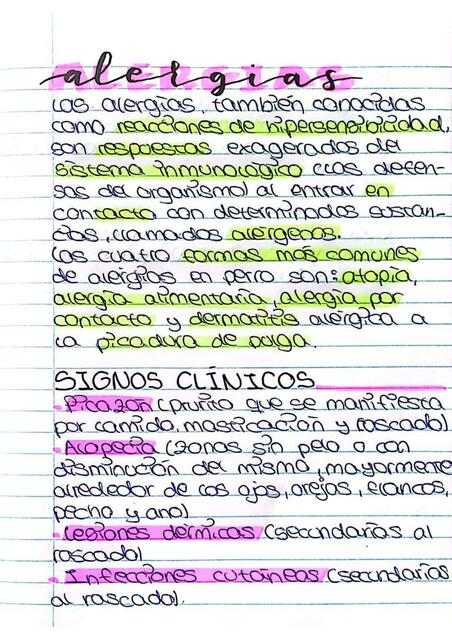 alergias
Las alergias, también conocidas
como reacciones de hipersensibilidad,
son respuestas exageradas del
sistema inmunológico (las defen-
sas del organismo) al entrar en
contacto con determinadas sustan-
cias, llamados alérgenos.
Las cuatro formas más comunes
de alergias en perro son: atopia,
alergia alimentaria, alergia por
contacto y dermatitis alérgica a
la picadura de pulga.
SIGNOS CLÍNICOS
· Picazón (prurito que se manifiesta
por lamido, masticación y rascado)
· Alopecia (zonas sin pelo o con
disminución del mismo, mayormente
alrededor de los ojos, orejas, flancos,
pecho y ano)
· Lesiones dérmicas (secundarias al
rascado)
· Infecciones cutáneas (secundarias
al rascado).